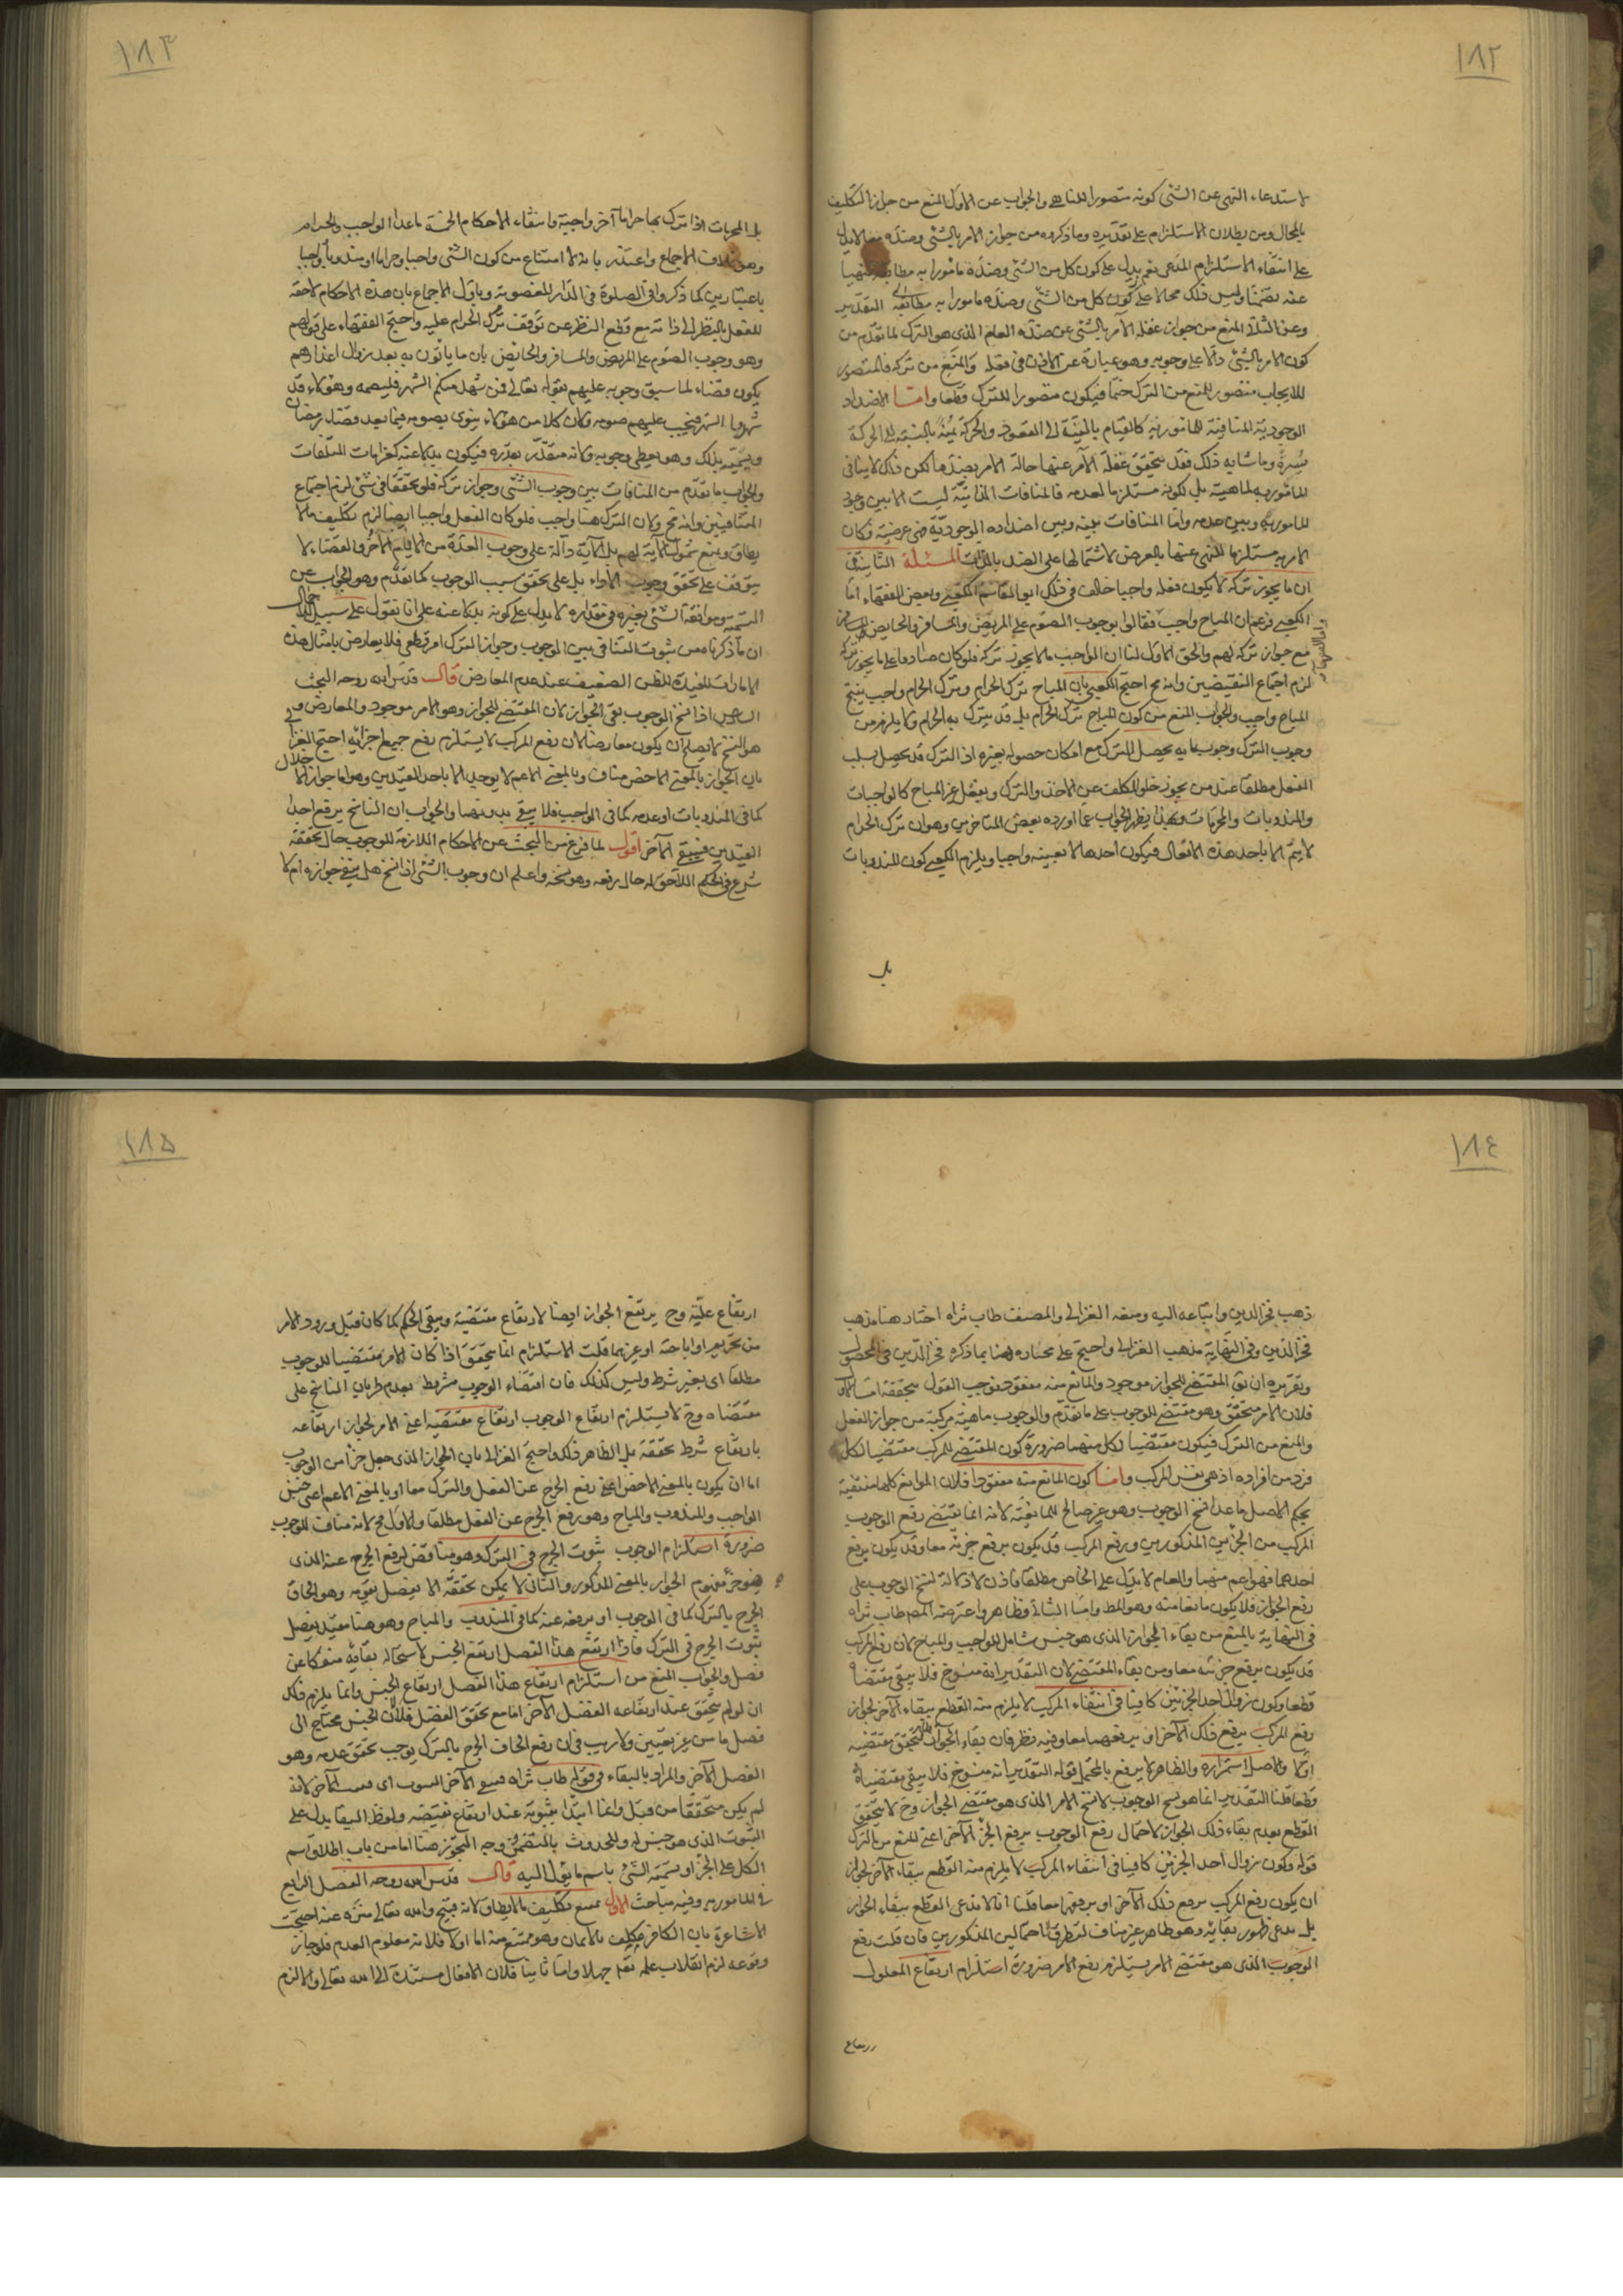 ١٨٢
لاستدعاء النهى عن الشئ كونه متصورا للناهى والجواب عن الاول المنع من جواز التكليف
بالمحال ومن بطلان الاستلزام على تقديره وما ذكروه من جواز الامر بالشئ وضده معا لا يدل
على انتفاء الاستلزام المدعى نعم يدل على كون كل من الشئ وضده مامورا به مطابقة منهيا
عنه تضمنا وليس ذلك محالا على كون كل من الشئ وضده مامورا به مطابقة التقدير
وعن الثانى المنع من جواز غفلة الآمر بالشئ عن ضده العام الذى هو الترك لما تقدم من
كون الامر بالشئ دالا على وجوبه وهو عبارة عن الاذن فى فعله والمنع من تركه فالمتصور
للايجاب متصور للمنع من الترك حتما فيكون متصورا للترك قطعا واما الاضداد
الوجودية المنافية للمامور به كالقيام بالنسبة الى القعود والحركة يمنة بالنسبة الى الحركة
يسرة وما شابه ذلك فقد يتحقق غفلة الآمر عنها حالة الامر بضدها لكن ذلك لا ينافى
المامور به لماهيته بل لكونه مستلزما لعدمه فالمنافات الذاتية ليست الا بين وجود
المامور به وبين عدمه واما المنافات بينه وبين اضداده الوجودية فهى عرضية فكان
الامر به مستلزما للنهى عنها بالعرض لاشتمالها على الضد بالذات المسئلة الثامنة فى
ان ما يجوز تركه لا يكون فعله واجبا خالف فى ذلك ابو القاسم الكعبى وبعض الفقهاء اما
الكعبى فزعم ان المباح واجب فقالوا بوجوب الصوم على المريض والمسافر والحايض
مع جواز تركه لهم والحق الاول لنا ان الواجب ما لا يجوز تركه فلو كان صادقا على ما يجوز تركه
لزم اجتماع النقيضين وانه مح احتج الكعبى بان المباح ترك الحرام وترك الحرام واجب ينتج
المباح واجب والجواب المنع من كون المباح ترك الحرام بل قد يترك به الحرام ولا يلزم من
وجوب الترك وجوب ما به يحصل الترك مع امكان حصوله بغيره اذ الترك قد يحصل بسلب
الفعل مطلقا عند من يجوز خلو المكلف عن الاخذ والترك وبفعل غير المباح كالواجبات
والمندوبات والمحرمات وبهذا يظهر الجواب عما اورده بعض المتاخرين وهو ان ترك الحرام
لا يتم الا باحد هذه الافعال فيكون احدها لا بعينه واجبا ويلزم الكعبى كون المندوبات
بل
١٨٣
بل المحرمات اذا ترك بها حراما آخر واجبة وانتفاء الاحكام الخمسة ما عدا الواجب والحرام
وهو خلاف الاجماع واعتذر بانه لا امتناع من كون الشئ واجبا وحراما او مندوبا وواجبا
باعتبارين كما ذكروا فى الصلوة فى الدار المغصوبة وياول الاجماع بان هذه الاحكام لاحقة
للفعل بالنظر الى ذاته مع قطع النظر عن توقف ترك الحرام عليه واحتج الفقهاء على قولهم
وهو وجوب الصوم على المريض والمسافر والحايض بان ما ياتون به بعد زوال اعذارهم
يكون قضاء لما سبق وجوبه عليهم بقوله تعالى فمن شهد منكم الشهر فليصمه وهؤلاء قد
شهدوا الشهر فيجب عليهم صومه وكان كلا من هؤلاء ينوى بصومه فيما بعد قضاء رمضان
ويسميه بذلك وهو يعطى وجوبه ولانه مقدر بقدره فيكون بدلا عنه كغرامات المتلفات
والجواب ما تقدم من المنافات بين وجوب الشئ وجواز تركه فلو تحققا فى شئ لزم اجتماع
المتنافيين وانه مح ولان الترك هنا واجب فلو كان الفعل واجبا ايضا لزم تكليف ما لا
يطاق ونمنع شمول الآية لهم بل الآية دالة على وجوب العدة من الايام الاخر والقضاء لا
يتوقف على تحقق وجوب الاداء بل على تحقق سبب الوجوب كما تقدم وهو الجواب عن
التسمية وموافقة الشئ بغيره فى مقداره لا يدل على كونه بدلا عنه على انا نقول على سبيل الاجمال
ان ما ذكرناه من ثبوت التنافى بين الوجوب وجواز الترك امر قطعى فلا يعارض بامثال هذه
الامارات المفيدة للظن الضعيف عند عدم المعارض قال قدس الله روحه البحث
السادس اذا نسخ الوجوب بقى الجواز لان المقتضى للجواز وهو الامر موجود والمعارض
هو النسخ لا يصلح ان يكون معارضا لان رفع المركب لا يستلزم رفع جميع اجزائه احتج الغزالى
بان الجواز بالمعنى الاخص مناف وبالمعنى الاعم لا يوجد الا باحد القيدين وهو اما جواز الاخلال
كما فى المندوبات او عدمه كما فى الواجب فلا يبقى بدونهما والجواب ان الناسخ يرفع احد
القيدين فيبقى الآخر اقول لما فرغ من البحث عن الاحكام اللازمة للوجوب حال تحققه
شرع فى الحكم اللاحق له حال رفعه وهو نسخه واعلم ان وجوب الشئ اذا نسخ هل يبقى جوازه ام لا
١٨٤
ذهب فخر الدين واتباعه اليه ومنعه الغزالى والمصنف طاب ثراه اختار هنا مذهب
فخر الدين وفى النهاية مذهب الغزالى واحتج على مختاره هنا بما ذكره فخر الدين فى المحصول
وتقريره ان نق المقتضى للجواز موجود والمانع منه مفقود فوجب القول بتحققه اما الاول
فلان الامر متحقق وهو مقتضى للوجوب على ما تقدم والوجوب ماهية مركبة من جواز الفعل
والمنع من الترك فيكون مقتضيا لكل منهما ضرورة كون المقتضى للمركب مقتضيا لكل
فرد من افراده اذ هى نفس المركب واما كون المانع منه مفقودا فلان الموانع كلها منتفية
بحكم الاصل ما عدا نسخ الوجوب وهو غير صالح للمانعية لانه انما يقتضى رفع الوجوب
المركب من الجزئين المذكورين ورفع المركب قد يكون برفع جزئيه معا وقد يكون برفع
احدهما فهو اعم منهما والعام لا يدل على الخاص مطلقا فاذن لا دلالة لنسخ الوجوب على
رفع الجواز فلا يكون مانعا منه وهو المط واما الثانى فظاهر واعترضه المصه طاب ثراه
فى النهاية بالمنع من بقاء الجواز الذى هو جنس شامل للواجب والمباح لان رفع المركب
قد يكون برفع جزئيه معا ومن بقاء المقتضى لان التقدير انه منسوخ فلا يبقى مقتضاه
قطعا وكون زوال احد الجزئين كافيا فى انتفاء المركب لا يلزم منه القطع ببقاء الآخر لجواز
رفع المركب برفع ذلك الآخر او برفعهما معا وفيه نظر فان بقاء الجواز ظاهر لتحقق مقتضيه
اولا ولاصل استمراره والظاهر لا يرفع بالمحتمل قوله التقدير انه منسوخ فلا يبقى مقتضاه
قطعا قلنا التقدير انما هو نسخ الوجوب لا نسخ الامر الذى هو مقتضى الجواز وح لا يتحقق
القطع بعدم بقاء ذلك الجواز لاحتمال رفع الوجوب برفع الجزء الآخر اعنى المنع من الترك
قوله وكون زوال احد الجزئين كافيا فى انتفاء المركب لا يلزم منه القطع ببقاء الآخر لجواز
ان يكون رفع المركب برفع ذلك الآخر او برفعهما معا قلنا انا لا ندعى القطع ببقاء الجواز
بل ندعى ظهور بقائه وهو ظاهر غير مناف لتطرق الاحتمالين المذكورين فان قلت رفع
الوجوب الذى هو مقتضى الامر يستلزم رفع الامر ضرورة استلزام ارتفاع المعلول
ارتفاع
١٨٥
ارتفاع علته وح يرتفع الجواز ايضا لارتفاع مقتضيه ويبقى الحكم كما كان قبل ورود الامر
من تحريم او اباحة او غيرهما قلت الاستلزام انما يتحقق اذا كان الامر مقتضيا للوجوب
مطلقا اى بغير شرط وليس كذلك فان اقتضاء الوجوب مشروط بعدم طريان الناسخ على
مقتضاه وح لا يستلزم ارتفاع الوجوب ارتفاع مقتضيه اعنى الامر لجواز ارتفاعه
بارتفاع شرط تحققه بل الظاهر ذلك واحتج الغزالى بان الجواز الذى جعل جزأ من الوجوب
اما ان يكون بالمعنى الاخص اعنى رفع الحرج عن الفعل والترك معا او بالمعنى الاعم اعنى جنس
الواجب والمندوب والمباح وهو رفع الحرج عن الفعل مطلقا والاول مح لانه مناف للوجوب
ضرورة استلزام الوجوب ثبوت الحرج فى الترك وهو مناقض لرفع الحرج عنه الذى
هو جزء مفهوم الجواز بالمعنى المذكور والثانى لا يمكن تحققه الا بفصل يقومه وهو الحاق
الحرج بالترك كما فى الوجوب او برفعه عنه كما فى المندوب والمباح وهو هنا مقيد بفصل
ثبوت الحرج فى الترك فاذا ارتفع هذا الفصل ارتفع الجنس لاستحالة بقائه منفكا عن
فصل والجواب المنع من استلزام ارتفاع هذا الفصل ارتفاع الجنس وانما يلزم ذلك
ان لو لم يتحقق عند ارتفاعه الفصل الآخر اما مع تحقق الفصل فلا لان الجنس محتاج الى
فصل ما من غير تعيين ولا ريب فى ان رفع الحاق الحرج بالترك يوجب تحقق عدمه وهو
الفصل الآخر والمراد بالبقاء فى قوله طاب ثراه فيبقى الآخر الثبوت اى فيثبت الآخر لانه
لم يكن متحققا من قبل وانما ابتدأ بثبوته عند ارتفاع نقيضه ولفظ البقاء يدل على
الثبوت الذى هو جنس له وللحدوث بالتضمن ووجه التجوز هنا اما من باب اطلاق اسم
الكل على الجزء او تسمية الشئ باسم ما يؤل اليه قال قدس الله روحه الفصل الرابع
فى المامور به وفيه مباحث الاول يمتنع تكليف ما لا يطاق لانه قبيح والله تعالى منزه عنه احتجت
الاشاعرة بان الكافر مكلف بالايمان وهو ممتنع منه اما اولا فلانه معلوم العدم فلو جاز
وقوعه لزم انقلاب علمه تعالى جهلا واما ثانيا فلان الافعال مستندة الى الله تعالى والا لزم